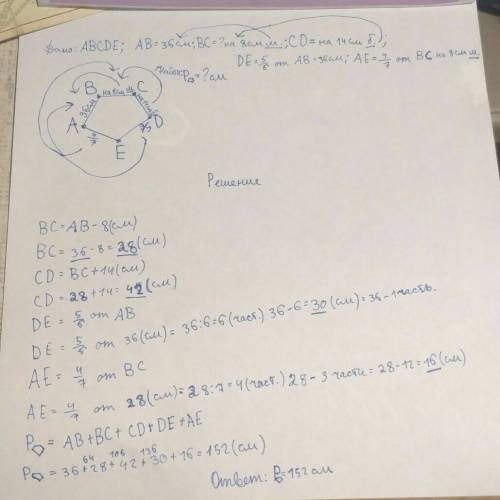 Дано: ABCDE; AB=36см; BC=? на 8см м.; CD= на 14см б.;
DE=5/6 от AB=36см; AE=4/7 от BC на 8см м.
P=?см
B на 8см м. C
36см
A
D
E
Решения
BC=AB-8(см)
BC=36-8=28(см)
CD=BC+14(см)
CD=28+14=42(см)
DE=5/6 от AB
DE=5/6 от 36(см)=36:6=6(част.) 36-6=30(см)=36-1часть.
AE=4/7 от BC
AE=4/7 от 28(см)=28:7=4(част.) 28-3 части=28-12=16(см)
P=AB+BC+CD+DE+AE
64 106 136
P=36+28+42+30+16=152(см)
Ответ: P=152см